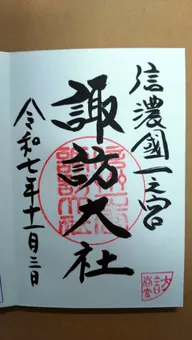 信濃國一之宮
諏訪大社
令和七年十一月三日